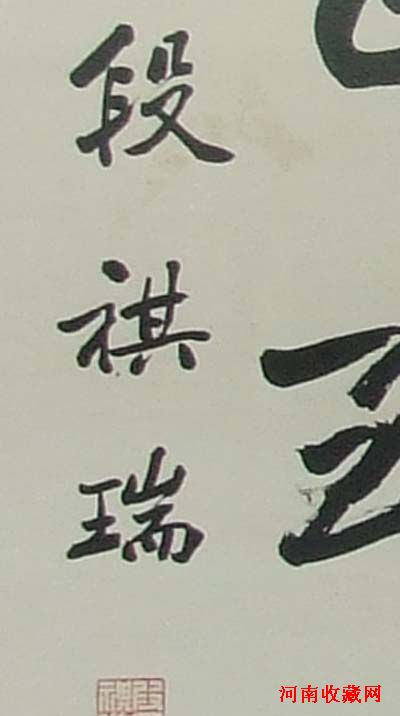 段祺瑞
河南收藏网